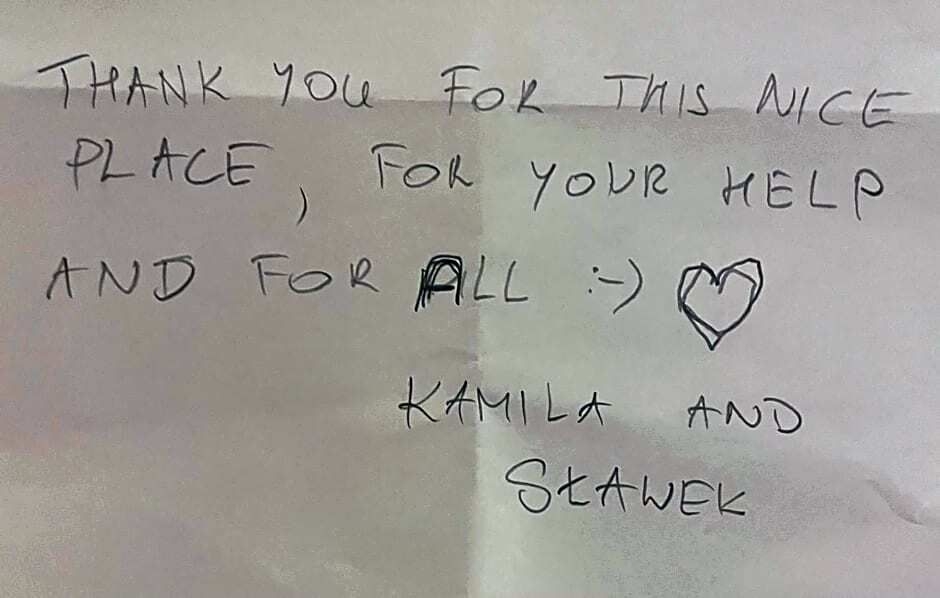 THANK YOU FOR THIS NICE
PLACE, FOR YOUR HELP
AND FOR ALL :-) ♡
KAMILA AND
SŁAWEK